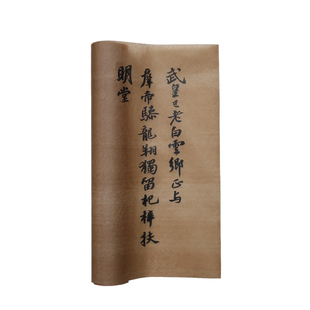 武皇已老白雲鄉正与
群帝驂龍翔獨留杞梓扶
明堂